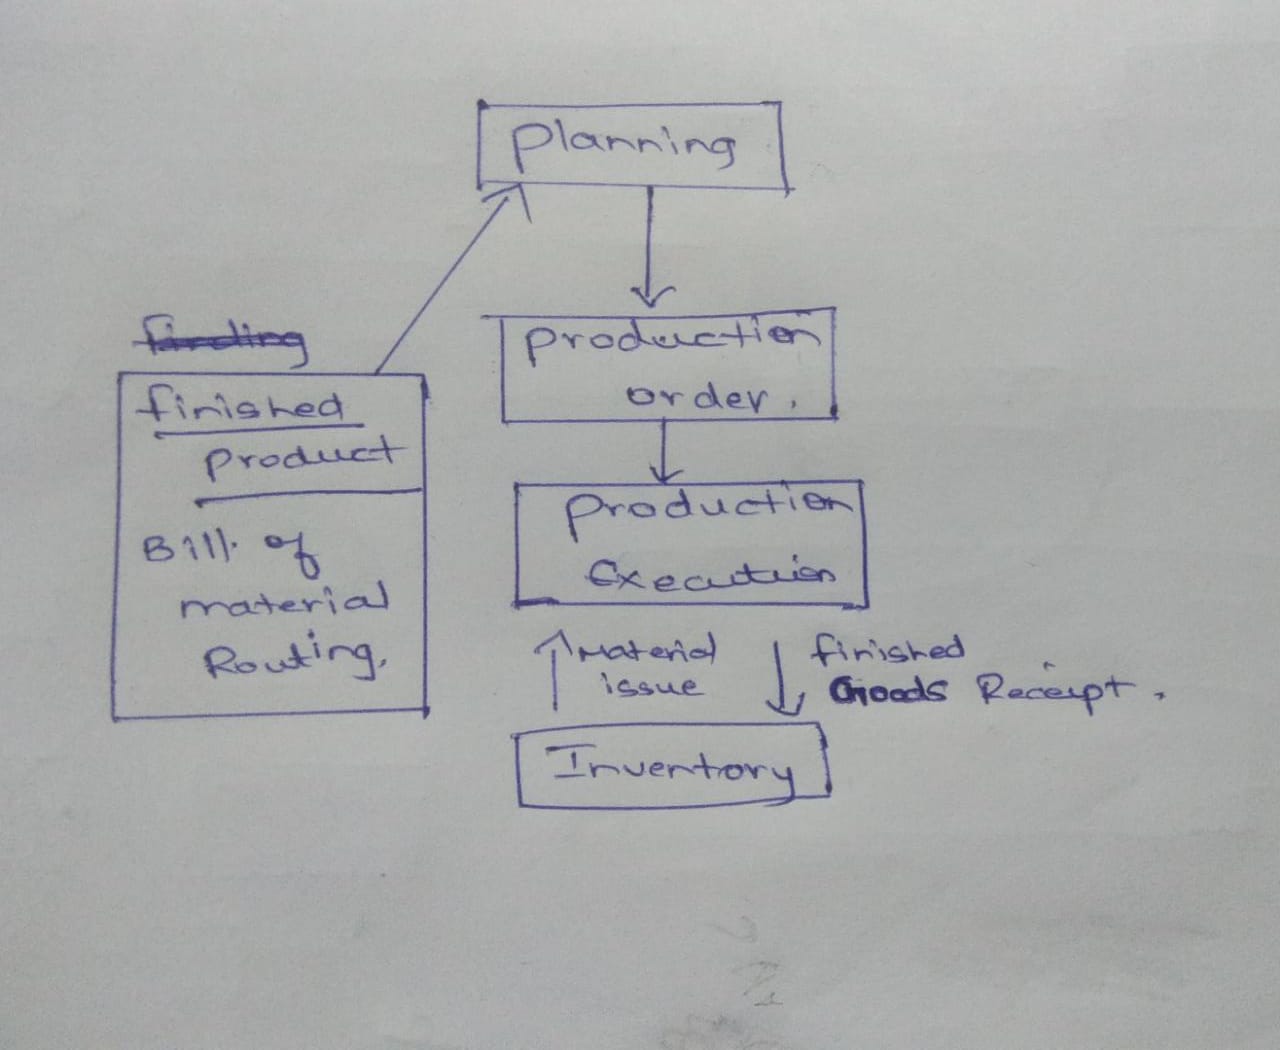 Planning
finding
finished
product
Bill of
material
Routing.
production
order.
production
Execution
Material
issue
finished
Goods Receipt.
Inventory